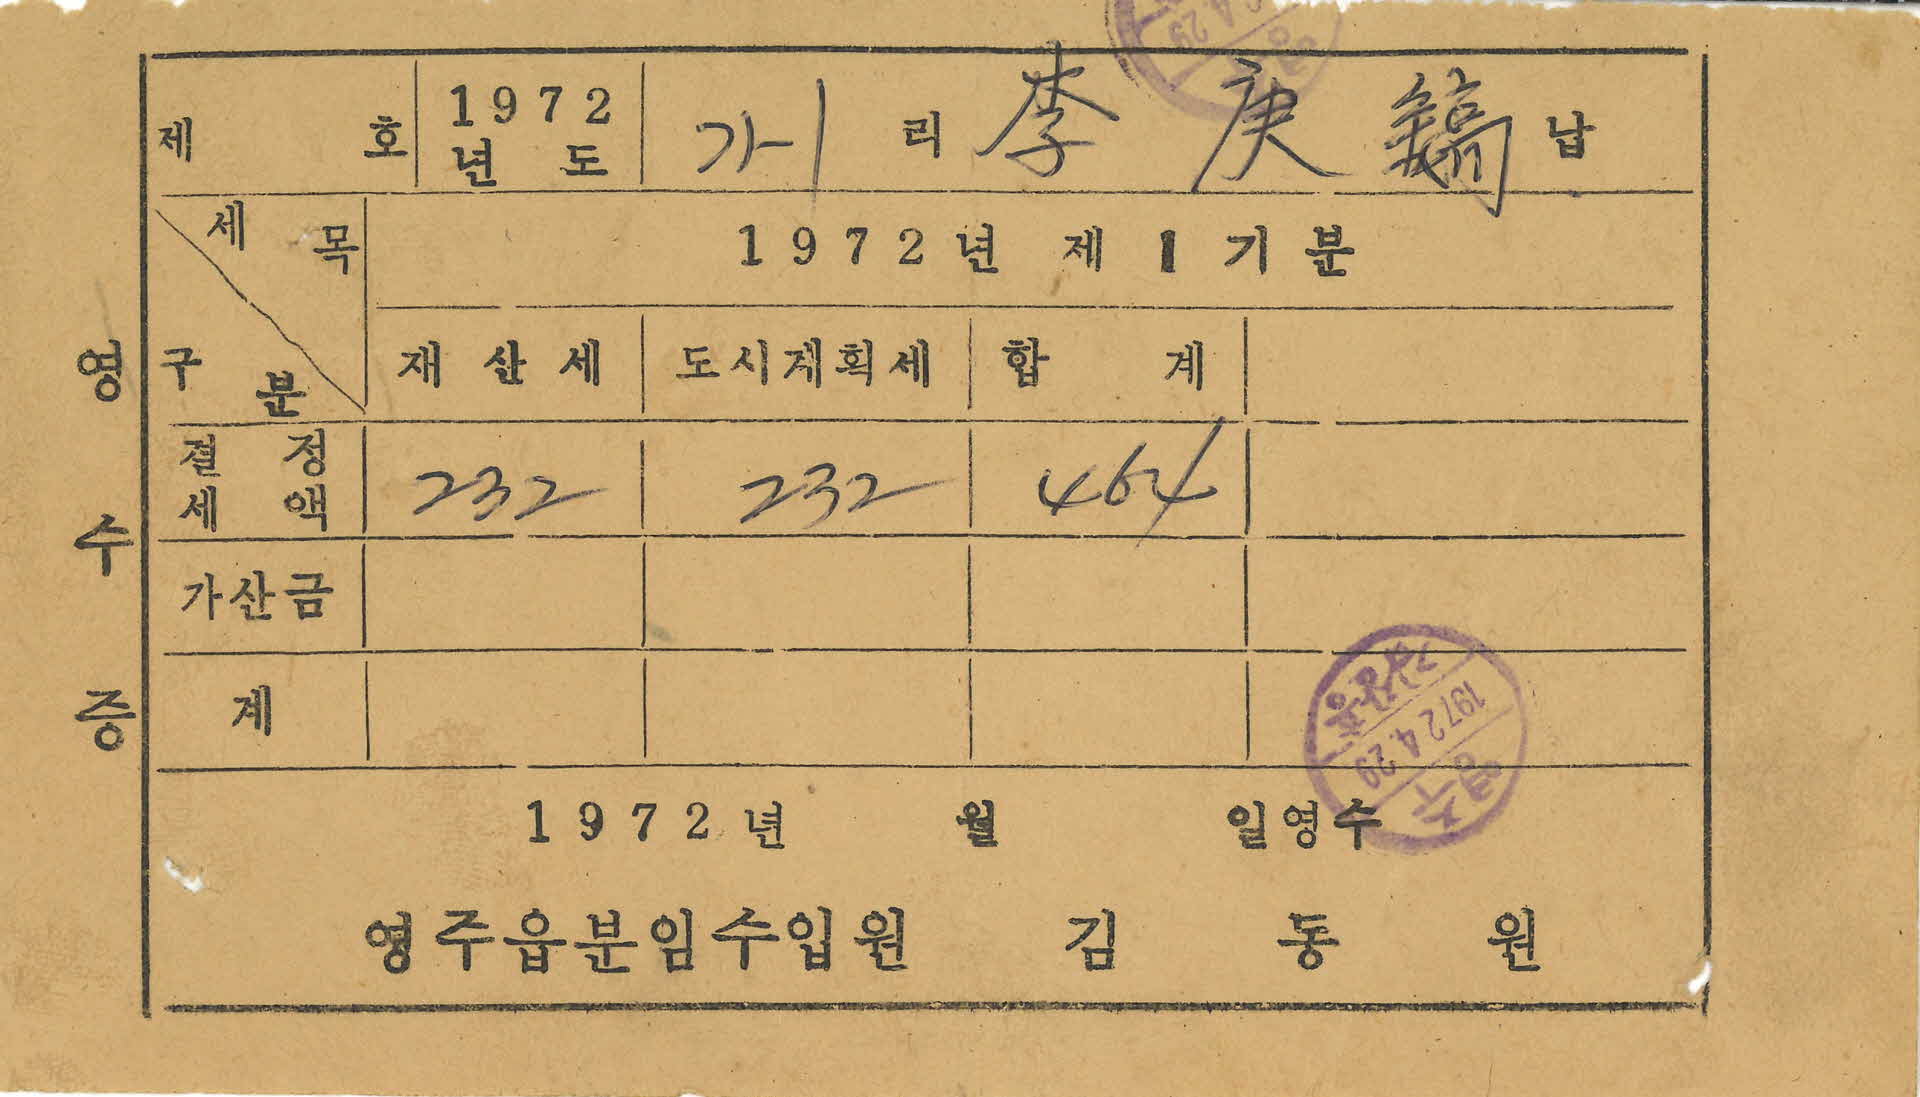 영수증
제 호 1972년도 가-1 리 李庚鎬 납
세목
구분
1972년 제 1 기분
재산세 도시계획세 합계
결정세액 232 232 464
가산금
계
1972년 월 일영수
영주 1972.4.29
영주읍분임수입원 김동원